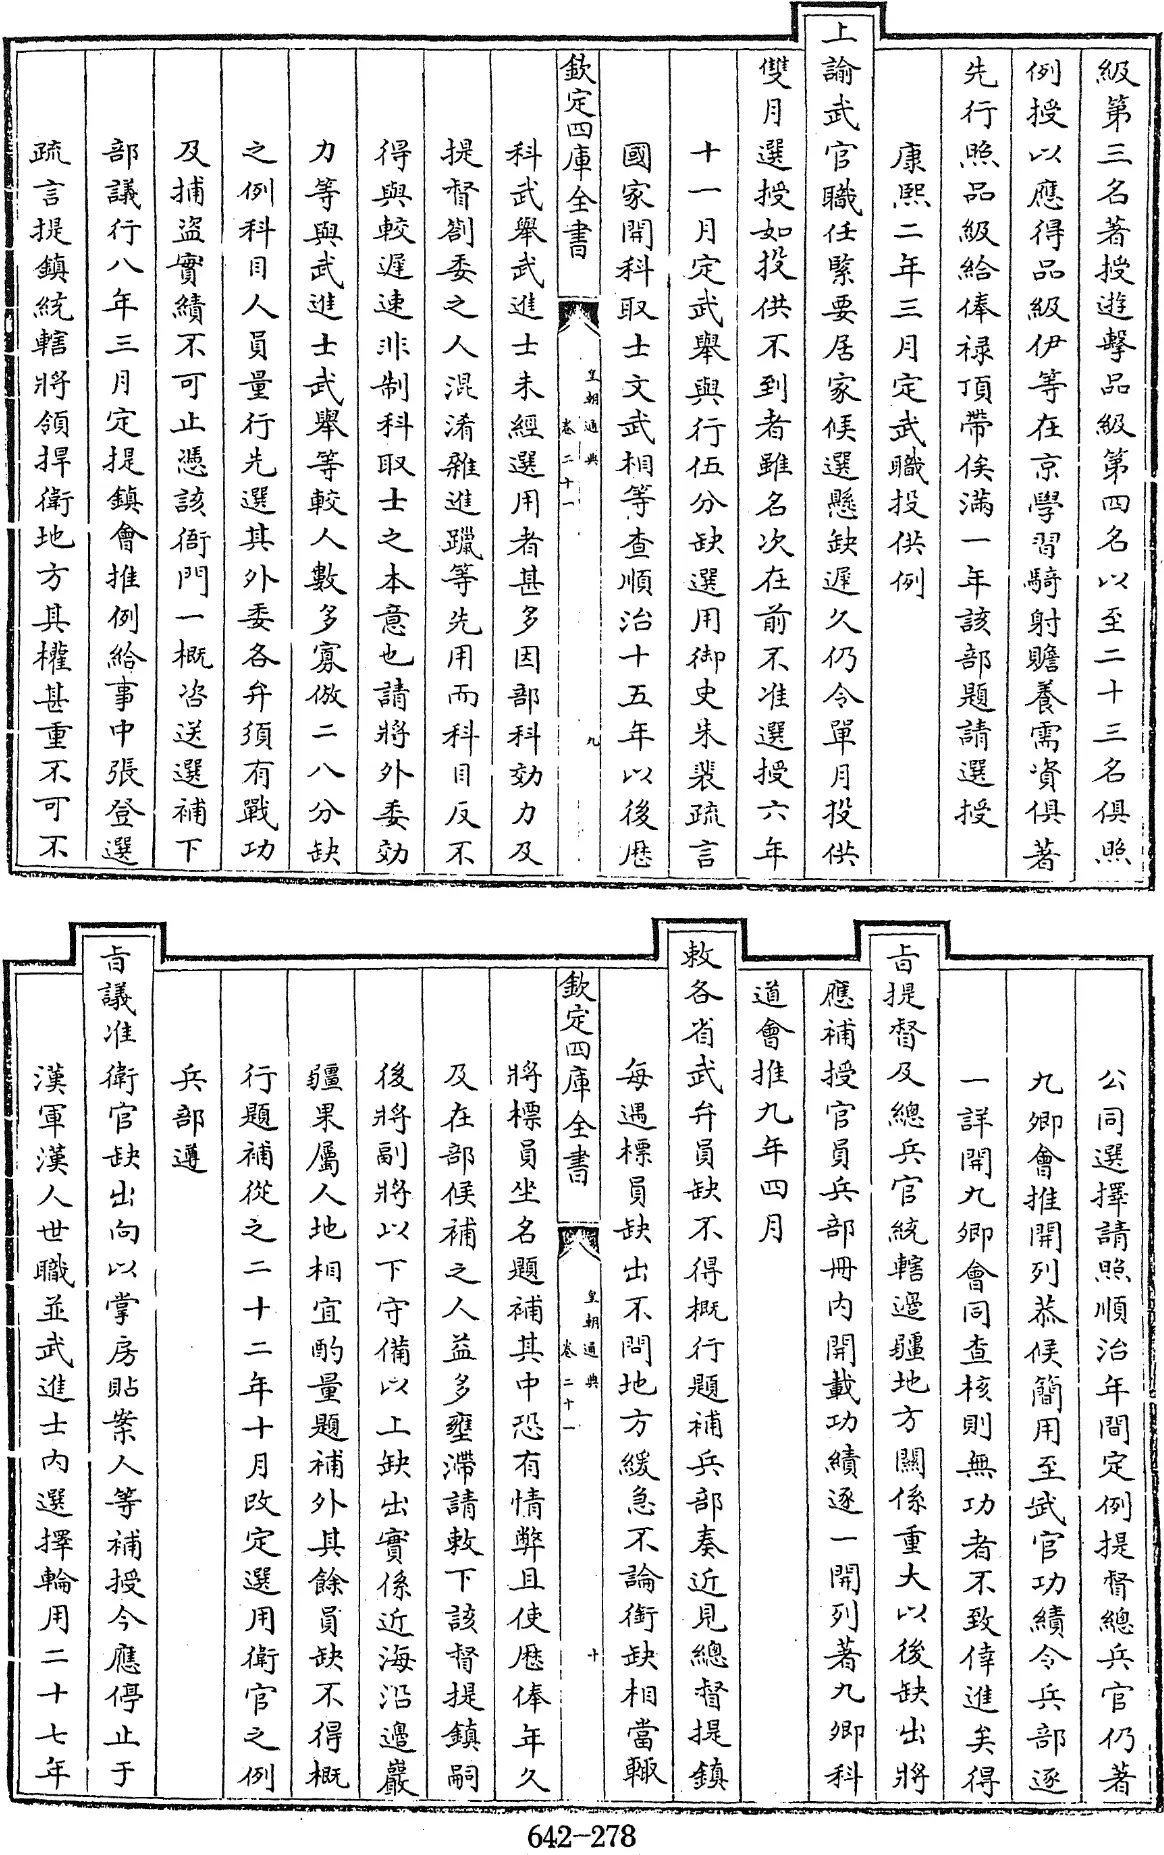 級第三名著授遊擊品級第四名以至二十三名俱照
例授以應得品級伊等在京學習騎射贍養需資俱著
先行照品級給俸祿頂帶俟滿一年該部題請選授
康熙二年三月定武職投供例
上諭武官職任緊要居家候選懸缺遲久仍令單月投供
雙月選授如投供不到者雖名次在前不准選授六年
十一月定武舉與行伍分缺選用御史朱裴疏言
國家開科取士文武相等查順治十五年以後歴
欽定四庫全書
皇朝通典
卷二十一
九
科武舉武進士未經選用者甚多因部科効力及
提督劄委之人混淆雜進躐等先用而科目反不
得與較遲速非制科取士之本意也請將外委効
力等與武進士武舉等較人數多寡倣二八分缺
之例科目人員量行先選其外委各弁須有戰功
及捕盜實績不可止憑該衙門一概咨送選補下
部議行八年三月定提鎮會推例給事中張登選
疏言提鎮統轄將領捍衛地方其權甚重不可不
公同選擇請照順治年間定例提督總兵官仍著
九卿會推開列恭候簡用至武官功績令兵部逐
一詳開九卿會同查核則無功者不致倖進矣得
旨提督及總兵官統轄邊疆地方關係重大以後缺出將
應補授官員兵部冊內開載功績逐一開列著九卿科
道會推九年四月
敕各省武弁員缺不得概行題補兵部奏近見總督提鎮
每遇標員缺出不問地方緩急不論銜缺相當輙
欽定四庫全書
皇朝通典
卷二十一
十
將標員坐名題補其中恐有情弊且使歴俸年久
及在部候補之人益多壅滯請敕下該督提鎮嗣
後將副將以下守備以上缺出實係近海沿邊嚴
疆果屬人地相宜酌量題補外其餘員缺不得概
行題補從之二十二年十月改定選用衛官之例
兵部遵
旨議准衛官缺出向以掌房貼案人等補授今應停止于
漢軍漢人世職並武進士內選擇輪用二十七年
642-278